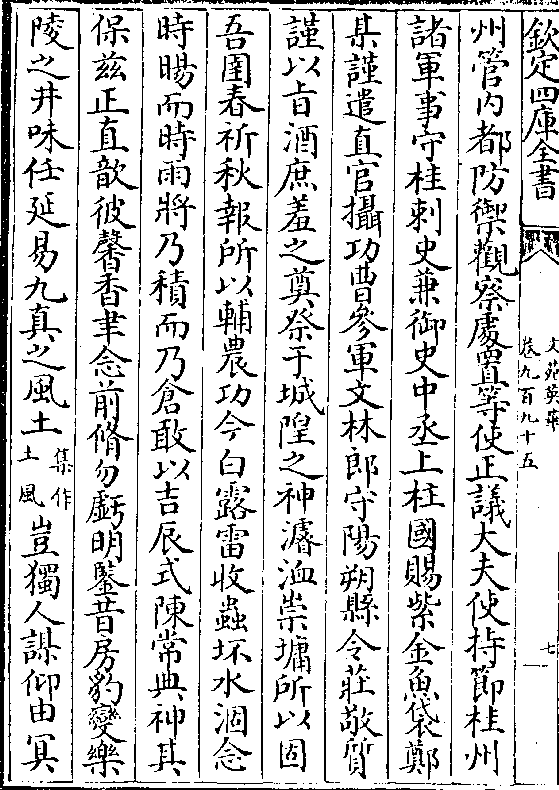 欽定四庫全書
文苑英華
卷九百九十五
七
州管内都防禦觀察處置等使正議大夫使持節桂州
諸軍事守桂刺史兼御史中丞上柱國賜紫金魚袋鄭
某謹遣直官攝功曹參軍文林郎守陽朔縣令莊敬質
謹以旨酒庶羞之奠祭于城隍之神濬洫崇墉所以固
吾圉春祈秋報所以輔農功今白露雷收蟲坏水涸念
時暘而時雨將乃積而乃倉敢以吉辰式陳常典神其
保兹正直歆彼馨香聿念前脩勿虧明鑒昔房豹變樂
陵之井味任延易九真之風土集作土風豈獨人謀仰由冥